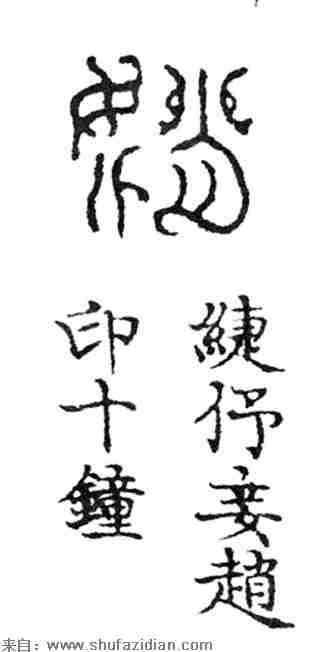 緁伃妾趙
印十鐘
来自：www.shufazidian.com